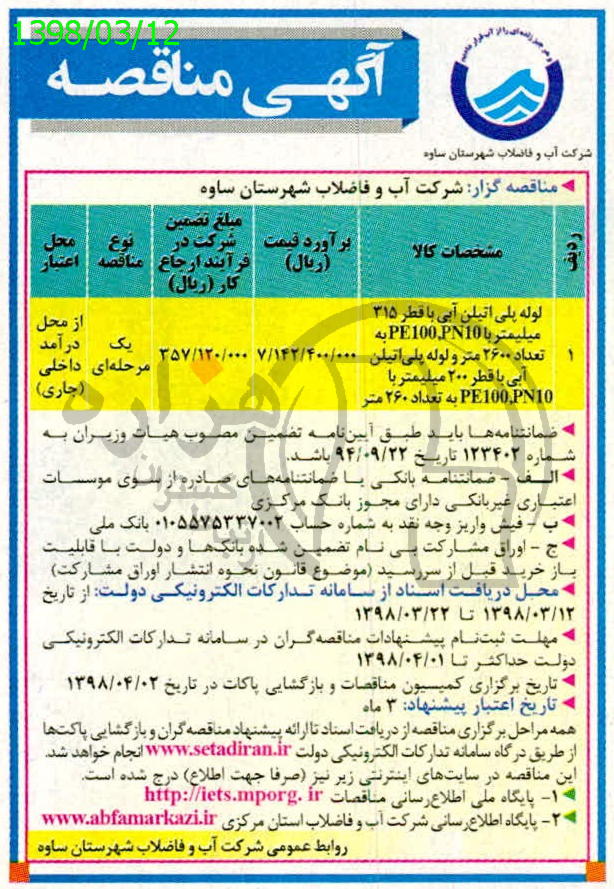 1398/03/12
و هر چیز زنده‌ای را از آب قرار دادیم
آگهی مناقصه
شرکت آب و فاضلاب شهرستان ساوه
مناقصه گزار: شرکت آب و فاضلاب شهرستان ساوه
ردیف
مشخصات کالا
برآورد قیمت (ریال)
مبلغ تضمین شرکت در فرآیند ارجاع کار (ریال)
نوع مناقصه
محل اعتبار
۱
لوله پلی اتیلن آبی با قطر ۳۱۵
میلیمتر با PE100,PN10 به
تعداد ۲۶۰۰ متر و لوله پلی اتیلن
آبی با قطر ۲۰۰ میلیمتر با
PE100,PN10 به تعداد ۲۶۰ متر
۷/۱۴۲/۴۰۰/۰۰۰
۳۵۷/۱۲۰/۰۰۰
یک مرحله‌ای
از محل درآمد داخلی (جاری)
هزاره
ضمانتنامه‌ها باید طبق آیین‌نامه تضمین مصوب هیات وزیران به
شماره ۱۲۳۴۰۲ تاریخ ۹۴/۰۹/۲۲ باشد.
الف - ضمانتنامه بانکی یا ضمانتنامه‌های صادره از سوی موسسات
اعتباری غیربانکی دارای مجوز بانک مرکزی
ب - فیش واریز وجه نقد به شماره حساب ۰۱۰۵۵۷۵۳۳۷۰۰۲ بانک ملی
ج - اوراق مشارکت بی نام تضمین شده بانک‌ها و دولت با قابلیت
باز خرید قبل از سررسید (موضوع قانون نحوه انتشار اوراق مشارکت)
محل دریافت اسناد از سامانه تدارکات الکترونیکی دولت: از تاریخ
۱۳۹۸/۰۳/۱۲ تا ۱۳۹۸/۰۳/۲۲
مهلت ثبت‌نام پیشنهادات مناقصه‌گران در سامانه تدارکات الکترونیکی
دولت حداکثر تا ۱۳۹۸/۰۴/۰۱
تاریخ برگزاری کمیسیون مناقصات و بازگشایی پاکات در تاریخ ۱۳۹۸/۰۴/۰۲
تاریخ اعتبار پیشنهاد: ۳ ماه
همه مراحل برگزاری مناقصه از دریافت اسناد تا ارائه پیشنهاد مناقصه گران و بازگشایی پاکت‌ها
از طریق درگاه سامانه تدارکات الکترونیکی دولت www.setadiran.ir انجام خواهد شد.
این مناقصه در سایت‌های اینترنتی زیر نیز (صرفا جهت اطلاع) درج شده است.
۱- پایگاه ملی اطلاع‌رسانی مناقصات http://iets.mporg.ir
۲- پایگاه اطلاع‌رسانی شرکت آب و فاضلاب استان مرکزی www.abfamarkazi.ir
روابط عمومی شرکت آب و فاضلاب شهرستان ساوه